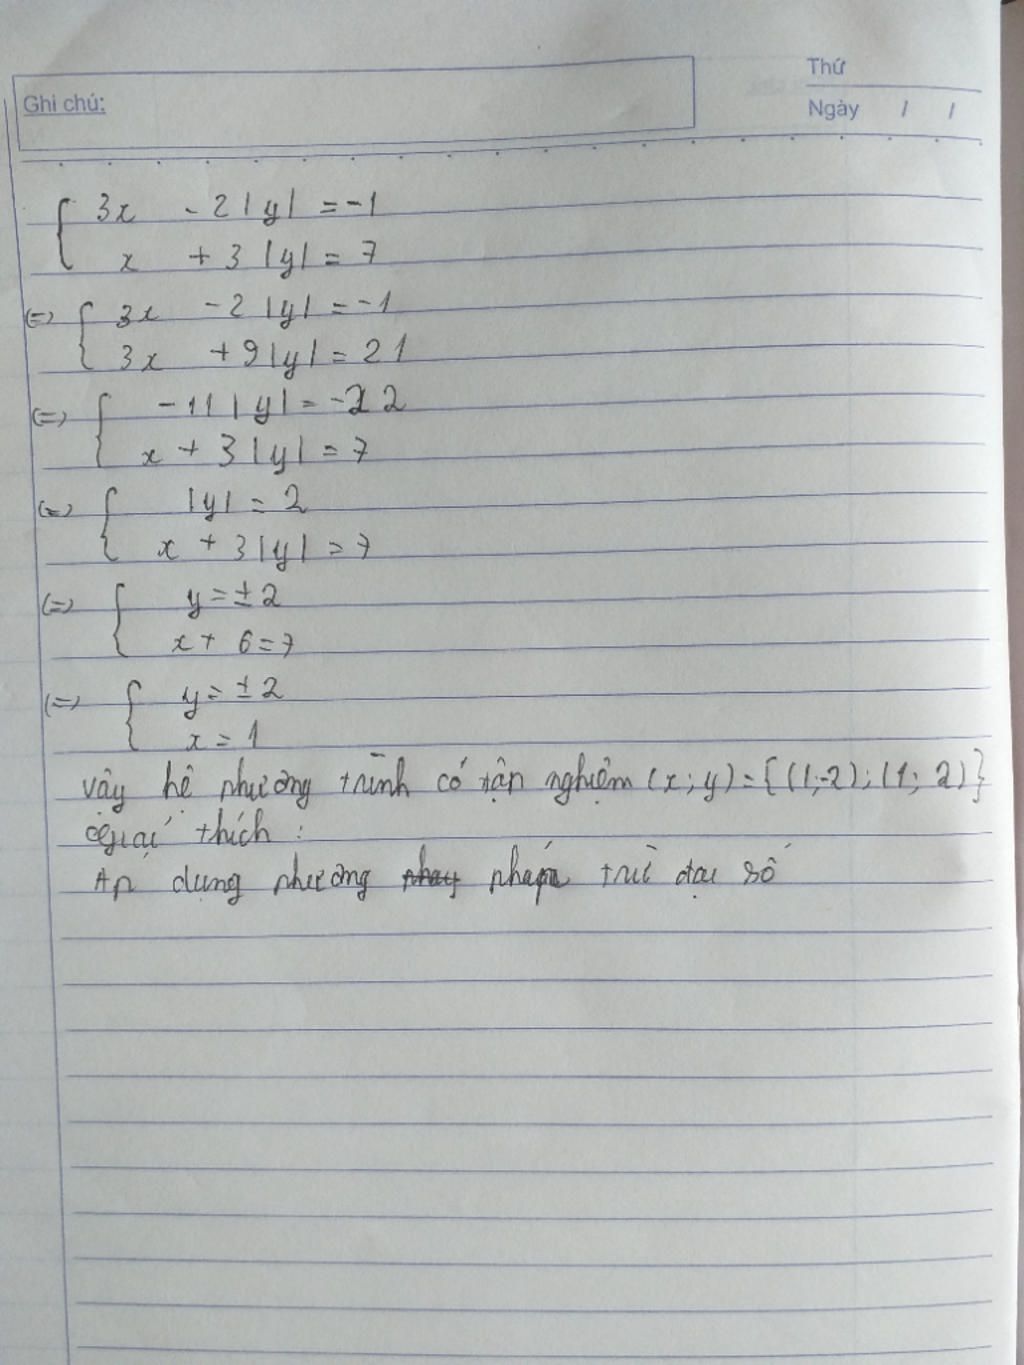 Thứ
Ghi chú:
Ngày / /
{ 3x - 2|y| = -1
x + 3|y| = 7
(=) { 3x - 2|y| = -1
3x + 9|y| = 21
(=) { -11|y| = -22
x + 3|y| = 7
(=) { |y| = 2
x + 3|y| = 7
(=) { y = ±2
x + 6 = 7
(=) { y = ±2
x = 1
vậy hệ phương trình có tận nghiệm (x; y) = {(1;-2); (1; 2)}
Giải thích :
Áp dụng phương pháp trừ đại số